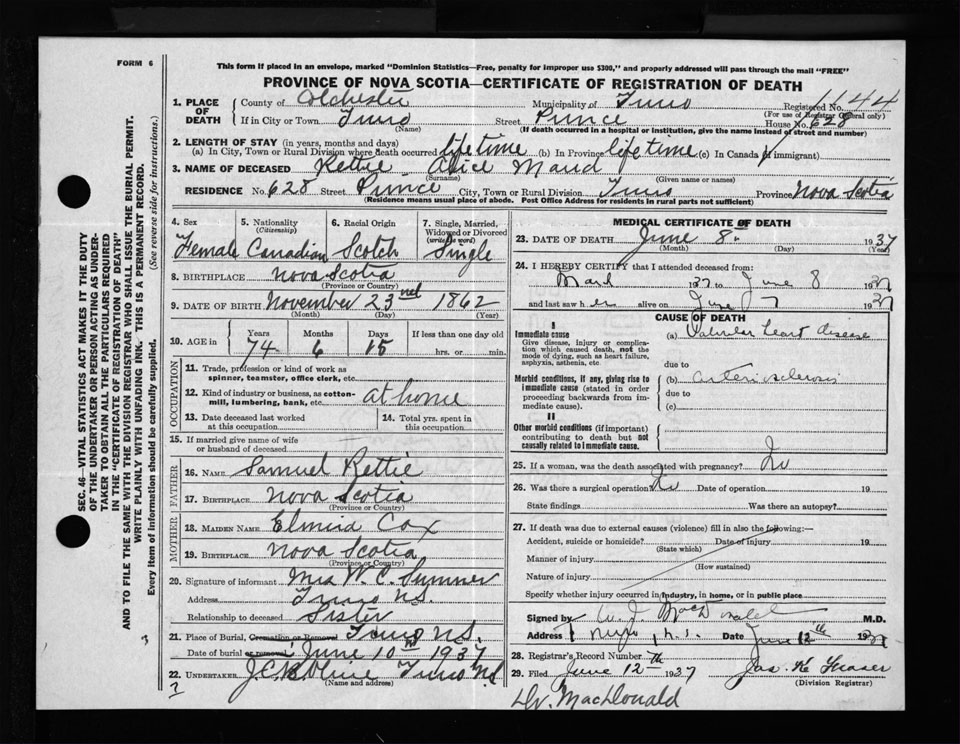 FORM 6
This form if placed in an envelope, marked "Dominion Statistics—Free, penalty for improper use $300," and properly addressed will pass through the mail "FREE"
PROVINCE OF NOVA SCOTIA—CERTIFICATE OF REGISTRATION OF DEATH
1. PLACE OF DEATH County of Colchester Municipality of Truro Registered No. 1144
(For use of Registrar General only)
If in City or Town Truro (Name) Street Prince House No. 628
(If death occurred in a hospital or institution, give the name instead of street and number)
2. LENGTH OF STAY (in years, months and days)
(a) In City, Town or Rural Division where death occurred lifetime (b) In Province lifetime (c) In Canada (if immigrant)
3. NAME OF DECEASED Rettie Alice Maud
(Surname) (Given name or names)
RESIDENCE No. 628 Street Prince City, Town or Rural Division Truro Province Nova Scotia
(Residence means usual place of abode. Post Office Address for residents in rural parts not sufficient)
4. Sex Female
5. Nationality (Citizenship) Canadian
6. Racial Origin Scotch
7. Single, Married, Widowed or Divorced (write the word) Single
8. BIRTHPLACE Nova Scotia
(Province or Country)
9. DATE OF BIRTH November 23 1862
(Month) (Day) (Year)
10. AGE in Years 74 Months 6 Days 15 If less than one day old hrs. or min.
OCCUPATION
11. Trade, profession or kind of work as spinner, teamster, office clerk, etc.
12. Kind of industry or business, as cotton-mill, lumbering, bank, etc. at home
13. Date deceased last worked at this occupation
14. Total yrs. spent in this occupation
15. If married give name of wife or husband of deceased
FATHER
16. NAME Samuel Rettie
17. BIRTHPLACE Nova Scotia
(Province or Country)
MOTHER
18. MAIDEN NAME Elmira Cox
19. BIRTHPLACE Nova Scotia
(Province or Country)
20. Signature of informant Mrs W. C. Sumner
Address Truro N.S.
Relationship to deceased Sister
21. Place of Burial, Cremation or Removal Truro N.S.
Date of burial or removal June 10th 1937
22. UNDERTAKER Truro N.S.
(Name and address)
MEDICAL CERTIFICATE OF DEATH
23. DATE OF DEATH June 8 1937
(Month) (Day) (Year)
24. I HEREBY CERTIFY that I attended deceased from
March 1937 to June 8 1937
and last saw her alive on June 7 1937
CAUSE OF DEATH
I
Immediate cause
Give disease, injury or complication which caused death, not the mode of dying, such as heart failure, asphyxia, asthenia, etc.
(a) Valvular heart disease
due to
Morbid conditions, if any, giving rise to immediate cause (stated in order proceeding backwards from immediate cause).
(b) arteriosclerosis
due to
(c)
II
Other morbid conditions (if important) contributing to death but not causally related to immediate cause.
25. If a woman, was the death associated with pregnancy? No
26. Was there a surgical operation? No Date of operation 19
State findings Was there an autopsy?
27. If death was due to external causes (violence) fill in also the following:—
Accident, suicide or homicide? Date of injury 19
(State which)
Manner of injury
(How sustained)
Nature of injury
Specify whether injury occurred in industry, in home, or in public place
Signed by W. J. MacDonald M.D.
Address Truro, N.S. Date June 12th 1937
28. Registrar's Record Number
29. Filed June 12th 1937 Jas. K. Fraser
(Division Registrar)
Dr. MacDonald
SEC. 46—VITAL STATISTICS ACT MAKES IT THE DUTY
OF THE UNDERTAKER OR PERSON ACTING AS UNDER-
TAKER TO OBTAIN ALL THE PARTICULARS REQUIRED
IN THE "CERTIFICATE OF REGISTRATION OF DEATH"
AND TO FILE THE SAME WITH THE DIVISION REGISTRAR WHO SHALL ISSUE THE BURIAL PERMIT.
WRITE PLAINLY WITH UNFADING INK. THIS IS A PERMANENT RECORD.
Every item of information should be carefully supplied. (See reverse side for instructions.)
3